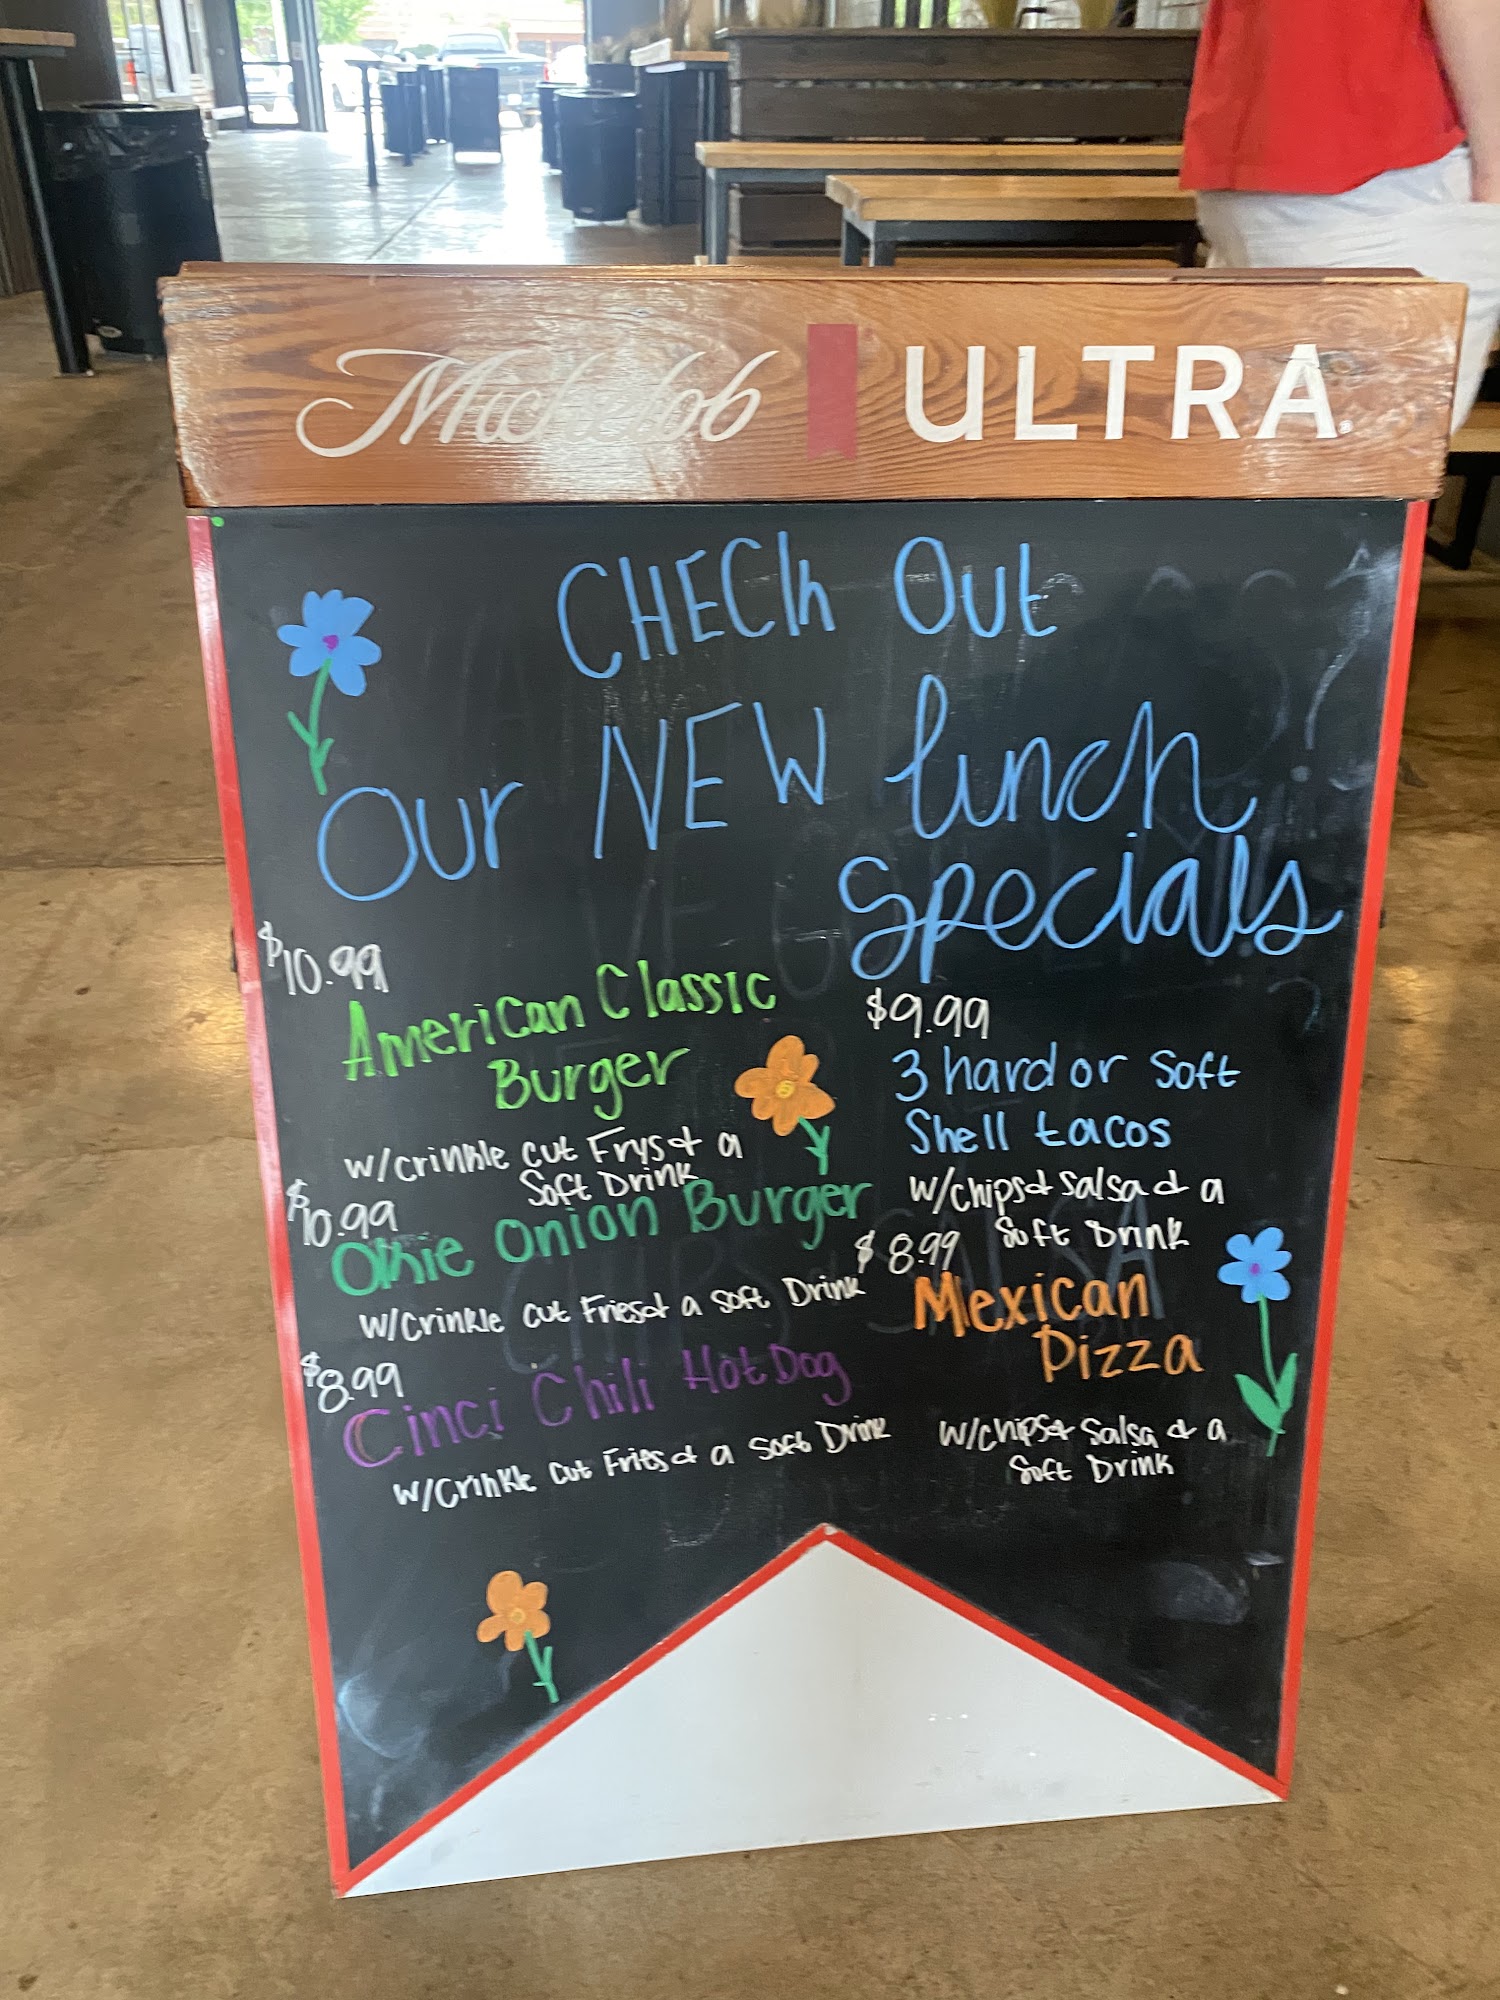 Michelob ULTRA
CHECk Out
Our NEW lunch
specials
$10.99
American Classic
Burger
w/crinkle cut Frys & a
Soft Drink
$10.99
Okie Onion Burger
w/Crinkle cut Fries & a soft Drink
$8.99
Cinci Chili HotDog
w/Crinkle cut Fries & a Soft Drink
$9.99
3 hard or Soft
Shell tacos
w/chips & Salsa & a
Soft Drink
$8.99
Mexican
Pizza
w/chips & Salsa & a
Soft Drink